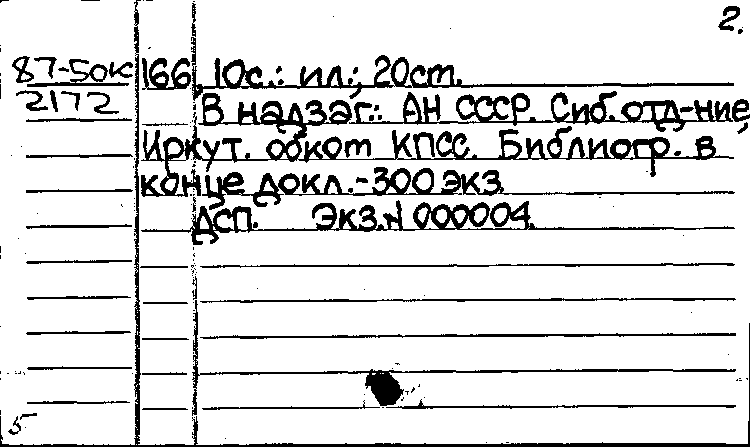 2.
87-50к 166, 10с.: ил.; 20ст.
2172 В надзаг.: АН СССР. Сиб. отд-ние,
Иркут. обком КПСС. Библиогр. в
конце докл.-300 экз.
ДСП. Экз.N 000004.
5